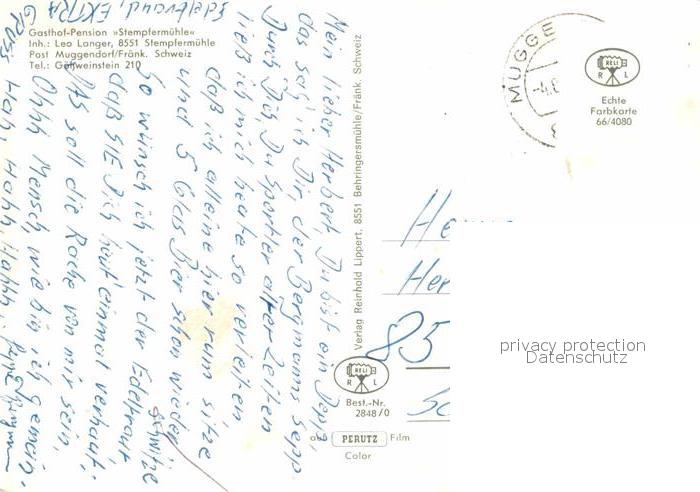 Gasthof-Pension »Stempfermühle«
Inh.: Leo Langer, 8551 Stempfermühle
Post Muggendorf/Fränk. Schweiz
Tel.: Gößweinstein 210
Mein lieber Herbert, Du bist ein Depp,
das sag' ich Dir, der Bergmanns Sepp.
Durch Dich Du Sportler alter Zeiten
ließ ich mich heute so verleiten
daß ich alleine hier rum sitze
und 5 Glas Bier schon wieder schwitze
So wünsch ich jetzt der Edeltraut
daß SIE Dich heut' einmal verhaut.
DAS soll die Rache von mir sein,
Ohhh Mensch, wie bin ich gemein,
Hahh, Hahh, Hahhh
GRUSS
Edeltraud, EXTRA
Verlag Reinhold Lippert, 8551 Behringersmühle/Fränk. Schweiz
MUGGE
-4.8
RELI
R L
Echte
Farbkarte
66/4080
He
Her
85
privacy protection
Datenschutz
RELI
R L
Best.-Nr.
2848/0
auf PERUTZ Film
Color